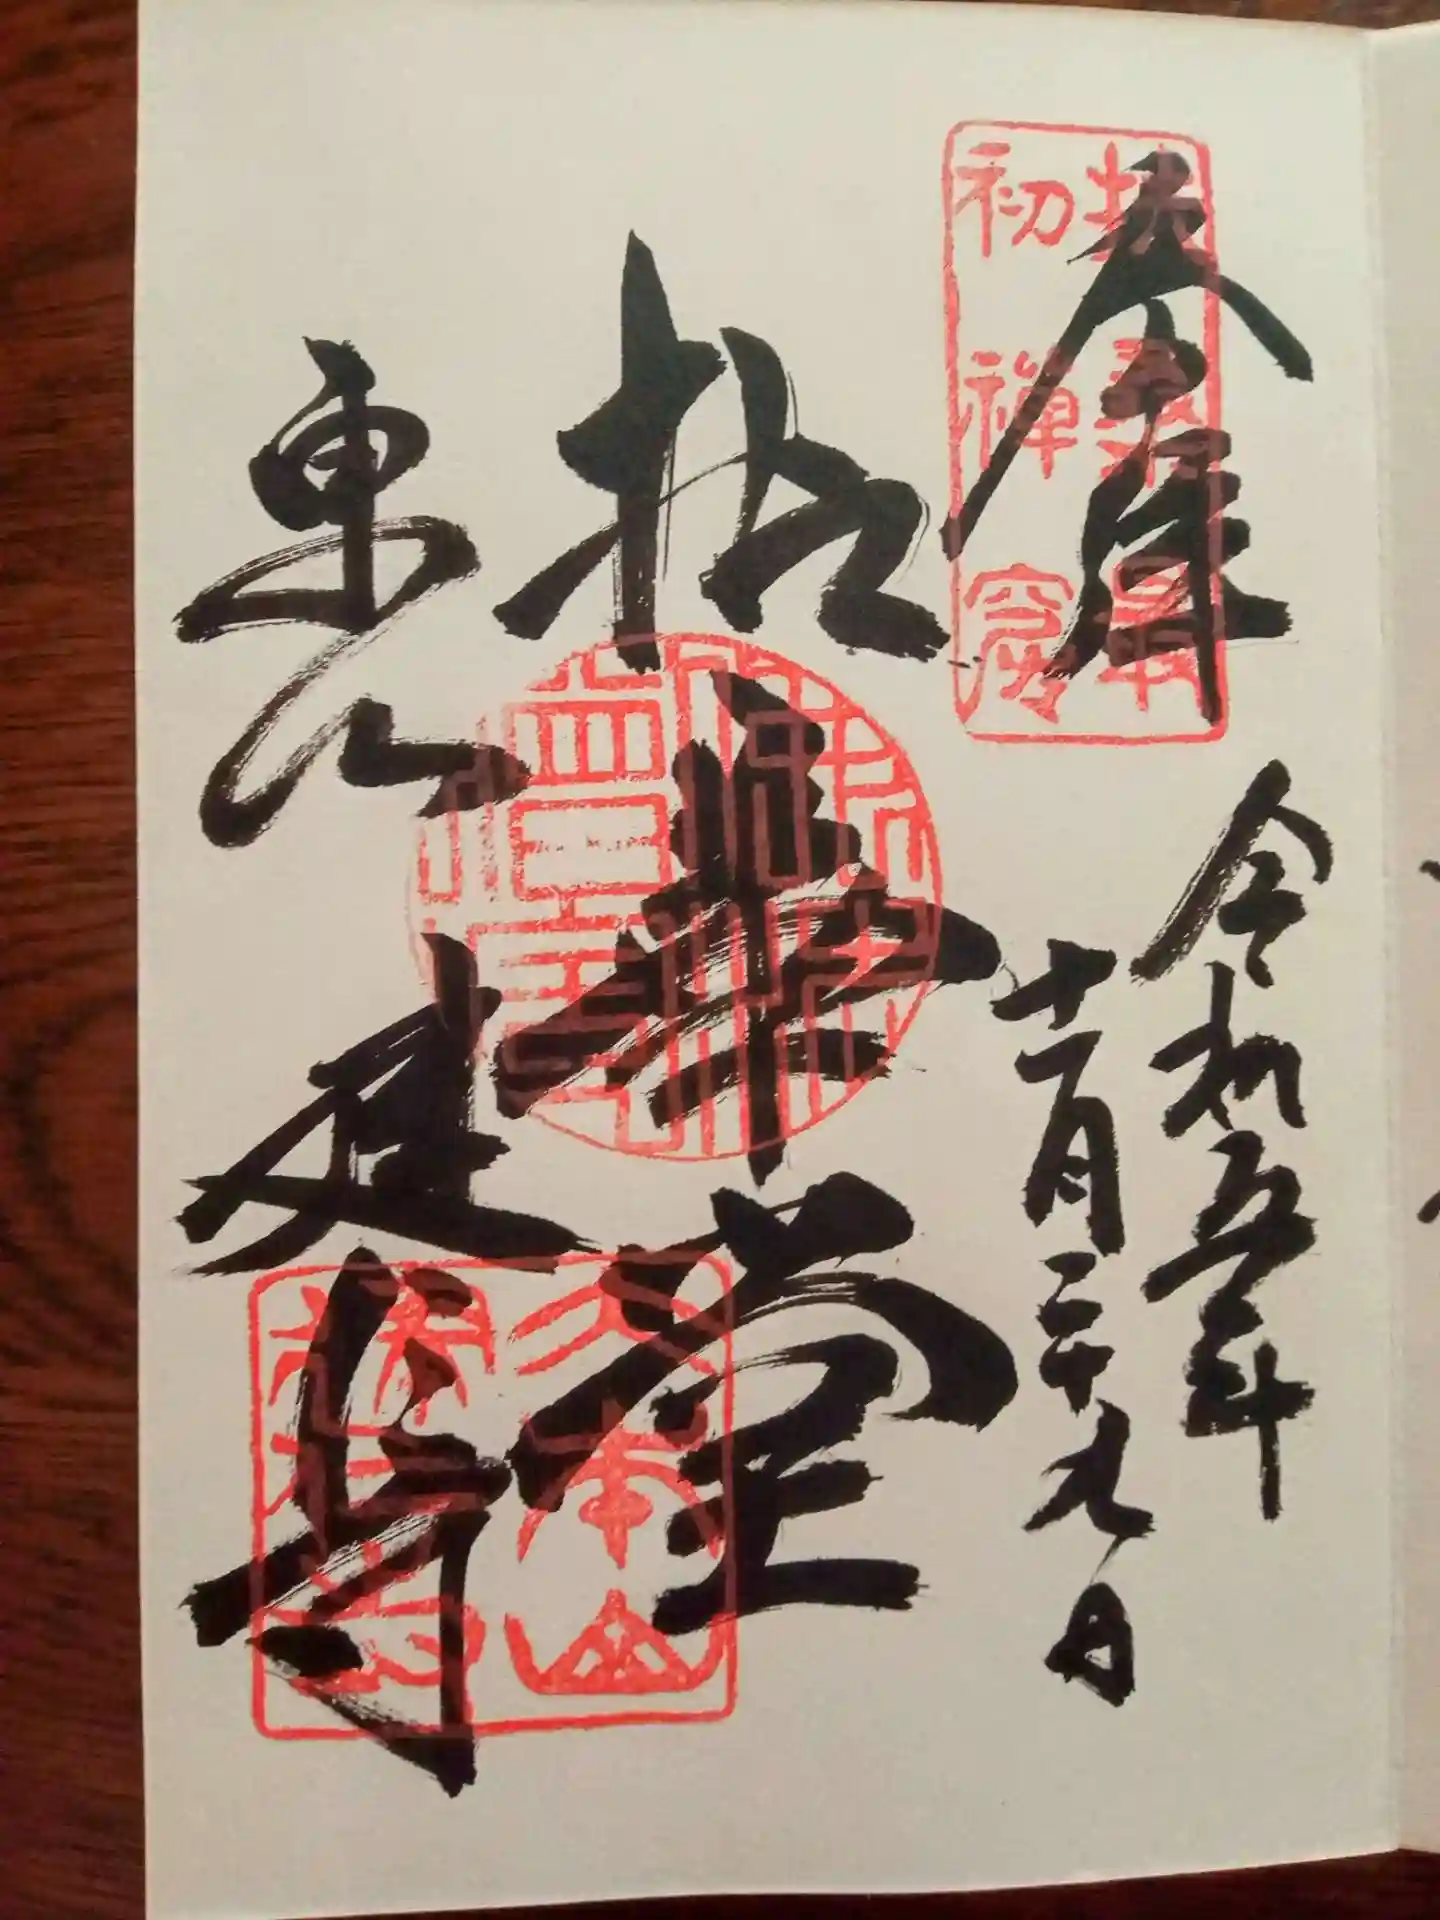 奉拝
扶桑最
初禅窟
令和五年
十一月二十九日
拈華堂
東山
建仁寺
大本山
建仁寺